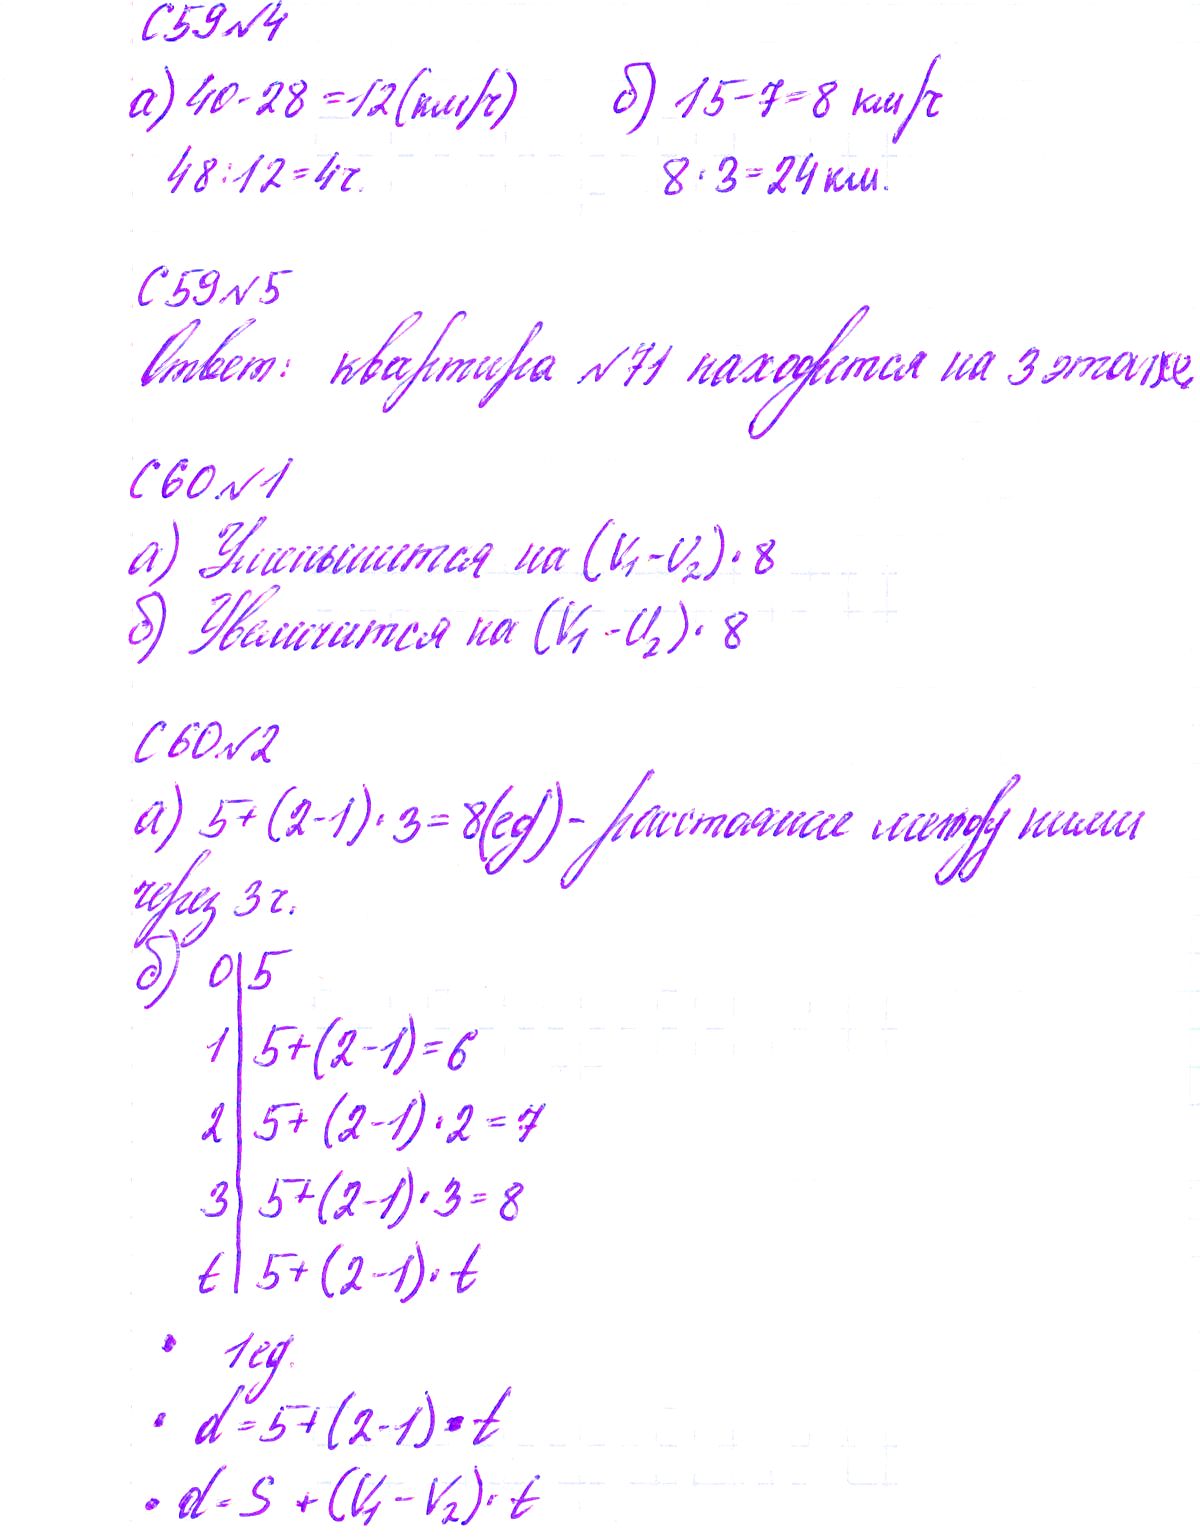 С59№4
а) 40-28=12(км/ч) б) 15-7=8 км/ч
48:12=4ч. 8·3=24км.
С59№5
Ответ: квартира №71 находится на 3 этаже
С60№1
а) Уменьшится на (V₁-V₂)·8
б) Увеличится на (V₁-V₂)·8
С60№2
а) 5+(2-1)·3=8(ед)- расстояние между ними
через 3ч.
б) 0|5
1|5+(2-1)=6
2|5+(2-1)·2=7
3|5+(2-1)·3=8
t|5+(2-1)·t
• 1ед.
• d=5+(2-1)·t
• d=S+(V₁-V₂)·t